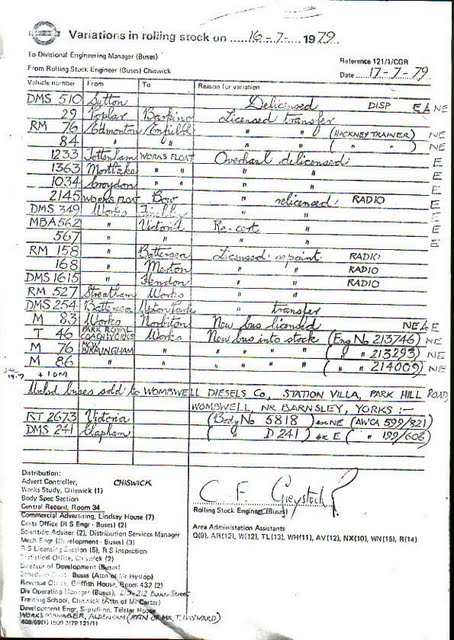 Variations in rolling stock on 16-7- 1979
To Divisional Engineering Manager (Buses)
From Rolling Stock Engineer (Buses) Chiswick
Reference 121/1/CGR
Date 17-7-79
Vehicle number From To Reason for variation
DMS 510 Sutton Delicensed DISP E & NE
29 Poplar Barking Licensed transfer
RM 76 Edmonton Enfield " " (HACKNEY TRAINER) NE
84 " " " " ( " " ) NE
1233 Tottenham WORKS FLOAT Overhaul delicensed E
1363 Mortlake " " " " E
1034 Croydon " " " " E
2145 WORKS FLOAT Bow " relicensed RADIO E
DMS 349 Works Finchley " " E
MBA 562 " Victoria Re-cert " E
567 " " " " E
RM 158 " Battersea Licensed repaint RADIO
168 " Merton " " RADIO
DMS 1615 " Hendon " " RADIO
RM 527 Streatham Works " "
DMS 254 Battersea " transfer
M 83 Works Norbiton New bus licensed NE & E
T 46 PARK ROYAL COACHWORKS Works New bus into stock (Eng No 213746)
M 76 MCW BIRMINGHAM " " " ( " 213293)
M 86 " " " " ( " 214009)
+ 10M
Unlsd buses sold to WOMBWELL DIESELS Co, STATION VILLA, PARK HILL ROAD
WOMBWELL, NR BARNSLEY, YORKS :-
RT 2673 Victoria (Body No 5818) ex NE (AWCA 599/821)
DMS 241 Clapham ( " D 241) ex E ( " 199/606)
Distribution:
Advert Controller, CHISWICK
Works Study, Chiswick (1)
Body Spec Section
Central Record, Room 34
Commercial Advertising, Lindsay House (7)
Costs Office (R S Engr - Buses) (2)
Scientific Adviser (2), Distribution Services Manager
Mech Engr (Development - Buses) (3)
R S Licensing Section (5), R S Inspection
Statistical Office, Chiswick (2)
Director of Development (Buses)
Buses (Attn of Mr Hyslop)
Revenue Griffith House, Room 432 (2)
Div Operating Manager (Buses), 213-212 Baker Street
Training School, Chiswick (Attn of Mr Carter)
Development Engr, Signalling, Telstar House
WORKS MANAGER, ALDENHAM (ATTN OF MR. T. HAYWARD)
C F Greystock
Rolling Stock Engineer (Buses)
Area Administration Assistants
Q(9), AR(12), W(12), TL(13), WH(11), AV(12), NX(10), WN(15), R(14)